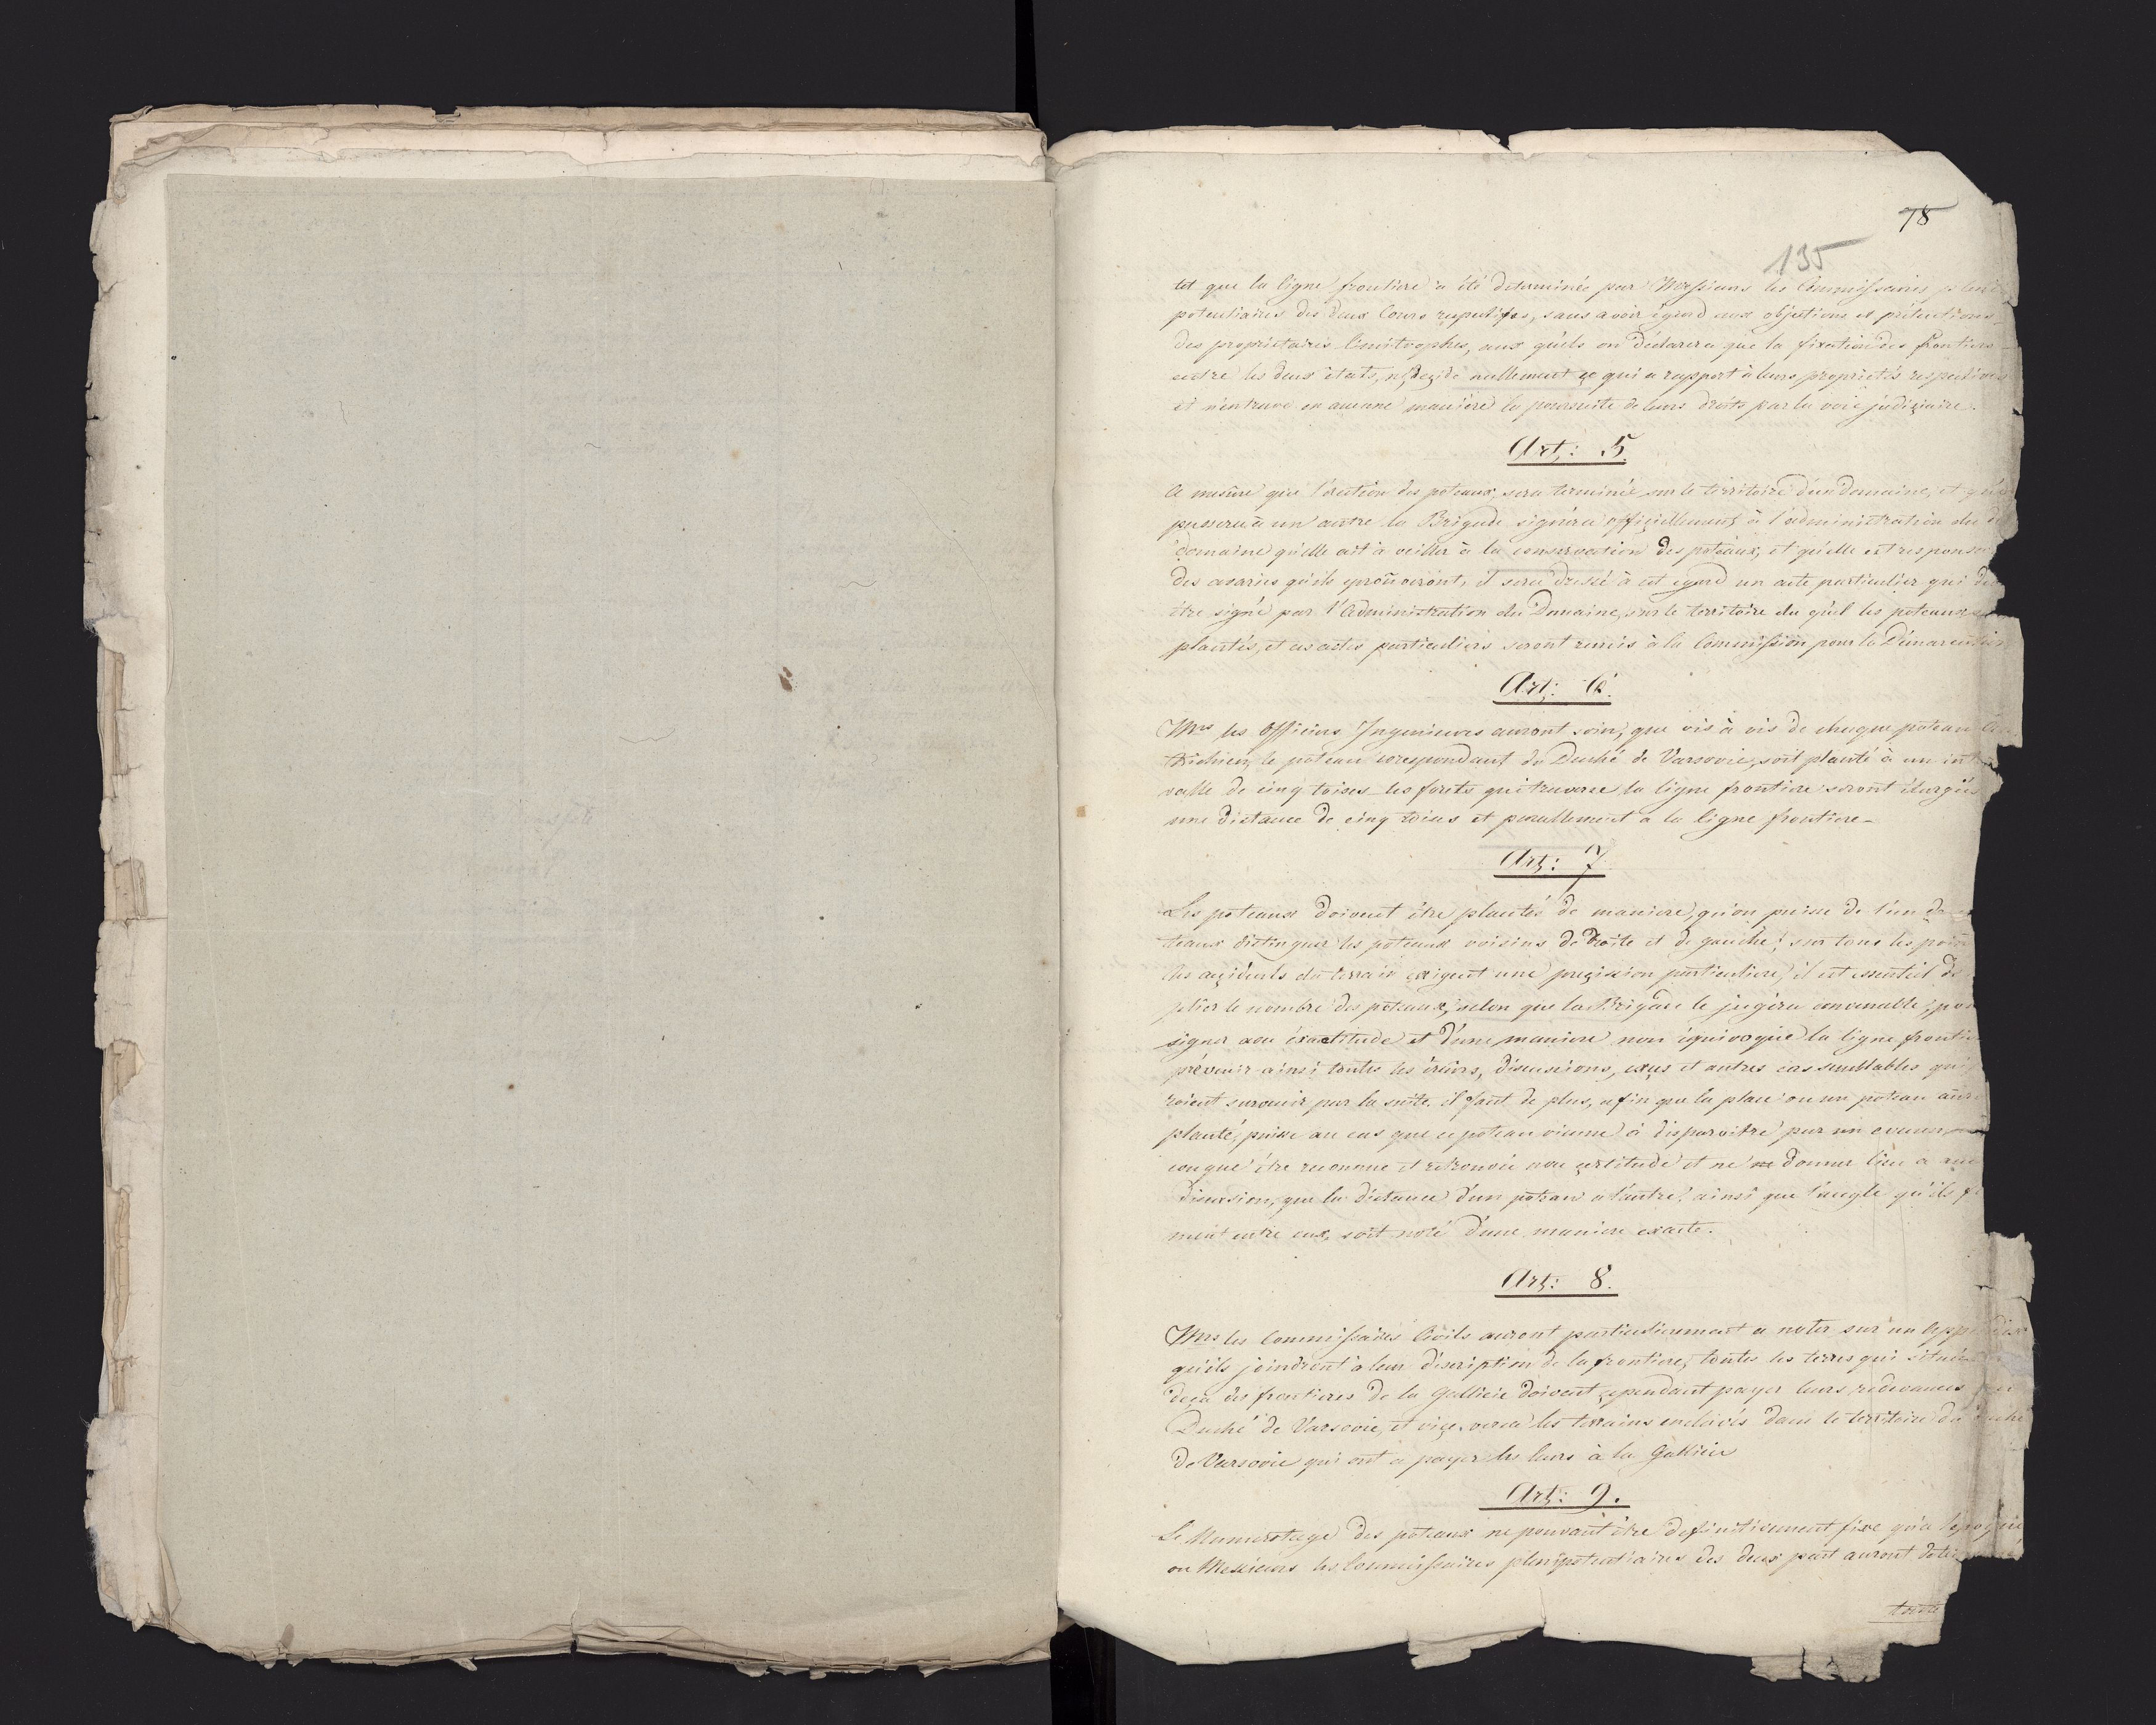 78
135
tet que la ligne frontiere a été determinée par Messieurs les Commissaires pleni
potentiaires des deux Cours respectifes, sans avoir égard aux objections et prétentions
des propriétaires limitrophes, aux quels on déclarera que la fixation des frontieres
entre les deux états, ne decide nullement ce qui a rapport à leurs propriétés respectives
et n'entrave en aucune maniére la poursuite de leurs droits par la voie judiciaire.
Art: 5.
A mesure que l'érection des poteaux, sera terminée sur le térritoire d'un Domaine, et
passera à un autre la Brigade signéra officiellement à l'administration du
domaine qu'elle ait à veiller à la conservation des poteaux, et qu'elle est responsa
des avaries qu'ils eprouveront, il sera dressé à cet egard un acte particulier qui
être signé par l'Administration du Domaine, sur le territoire du quel les poteaux
plantés, et ces actes particuliers seront remis à la Commission pour la Démarcation
Art: 6.
Mrs les Officiers Ingenieurs auront soin, que vis à vis de chaque poteau
trichien, le poteau correspondant du Duché de Varsovie, soit planté à un int
valle de cinq toises les forets que traverse la ligne frontiere seront élargies
une distance de cinq toises et parallement a la ligne frontiere_
Art: 7
Les poteaux doivent être plantés de maniere, qu'on puisse de l'un de
teaux distinguer les poteaux voisins de droite et de gauche; sur tous les poin
les accidents du terrain exigent une precision particuliere, il est essentiel de
plier le nombre des poteaux, selon que la Brigade le jugera convenable, pou
signer avec éxactitude et d'une maniere non équivoque la ligne frontie
prévenir ainsi toutes les érreurs, discussions, et autres cas semblables qui
roient survenir par la suite. il faut de plus, afin que la place ou un poteau aura
planté, puisse au cas que ce poteau vienne à disparaitre par un
conque être reconnue et retrouvée avec certitude et ne donner lieu a
discussion, que la distance d'un poteau a l'autre, ainsi que l'angle qu'ils f
ment entre eux, soit noté d'une maniere exacte.
Art: 8.
Mrs les Commissaires Civils auront particulierement a noter sur un App
qu'ils joindront à leur discription de la frontiere, toutes les terres qui située
deça des frontieres de la Gallicie doivent cependant payer leurs redevances
Duché de Varsovie, et vice-versa les terrains enclavés dans le territoire du Duché
de Varsovie qui ont a payer les leurs à la Gallicie
Art: 9.
Le Numerotage des poteaux ne pouvant être definitivement fixe qu'a l'epoque
ou Messieurs les Commissaires plenipotentiaires des deux part auront